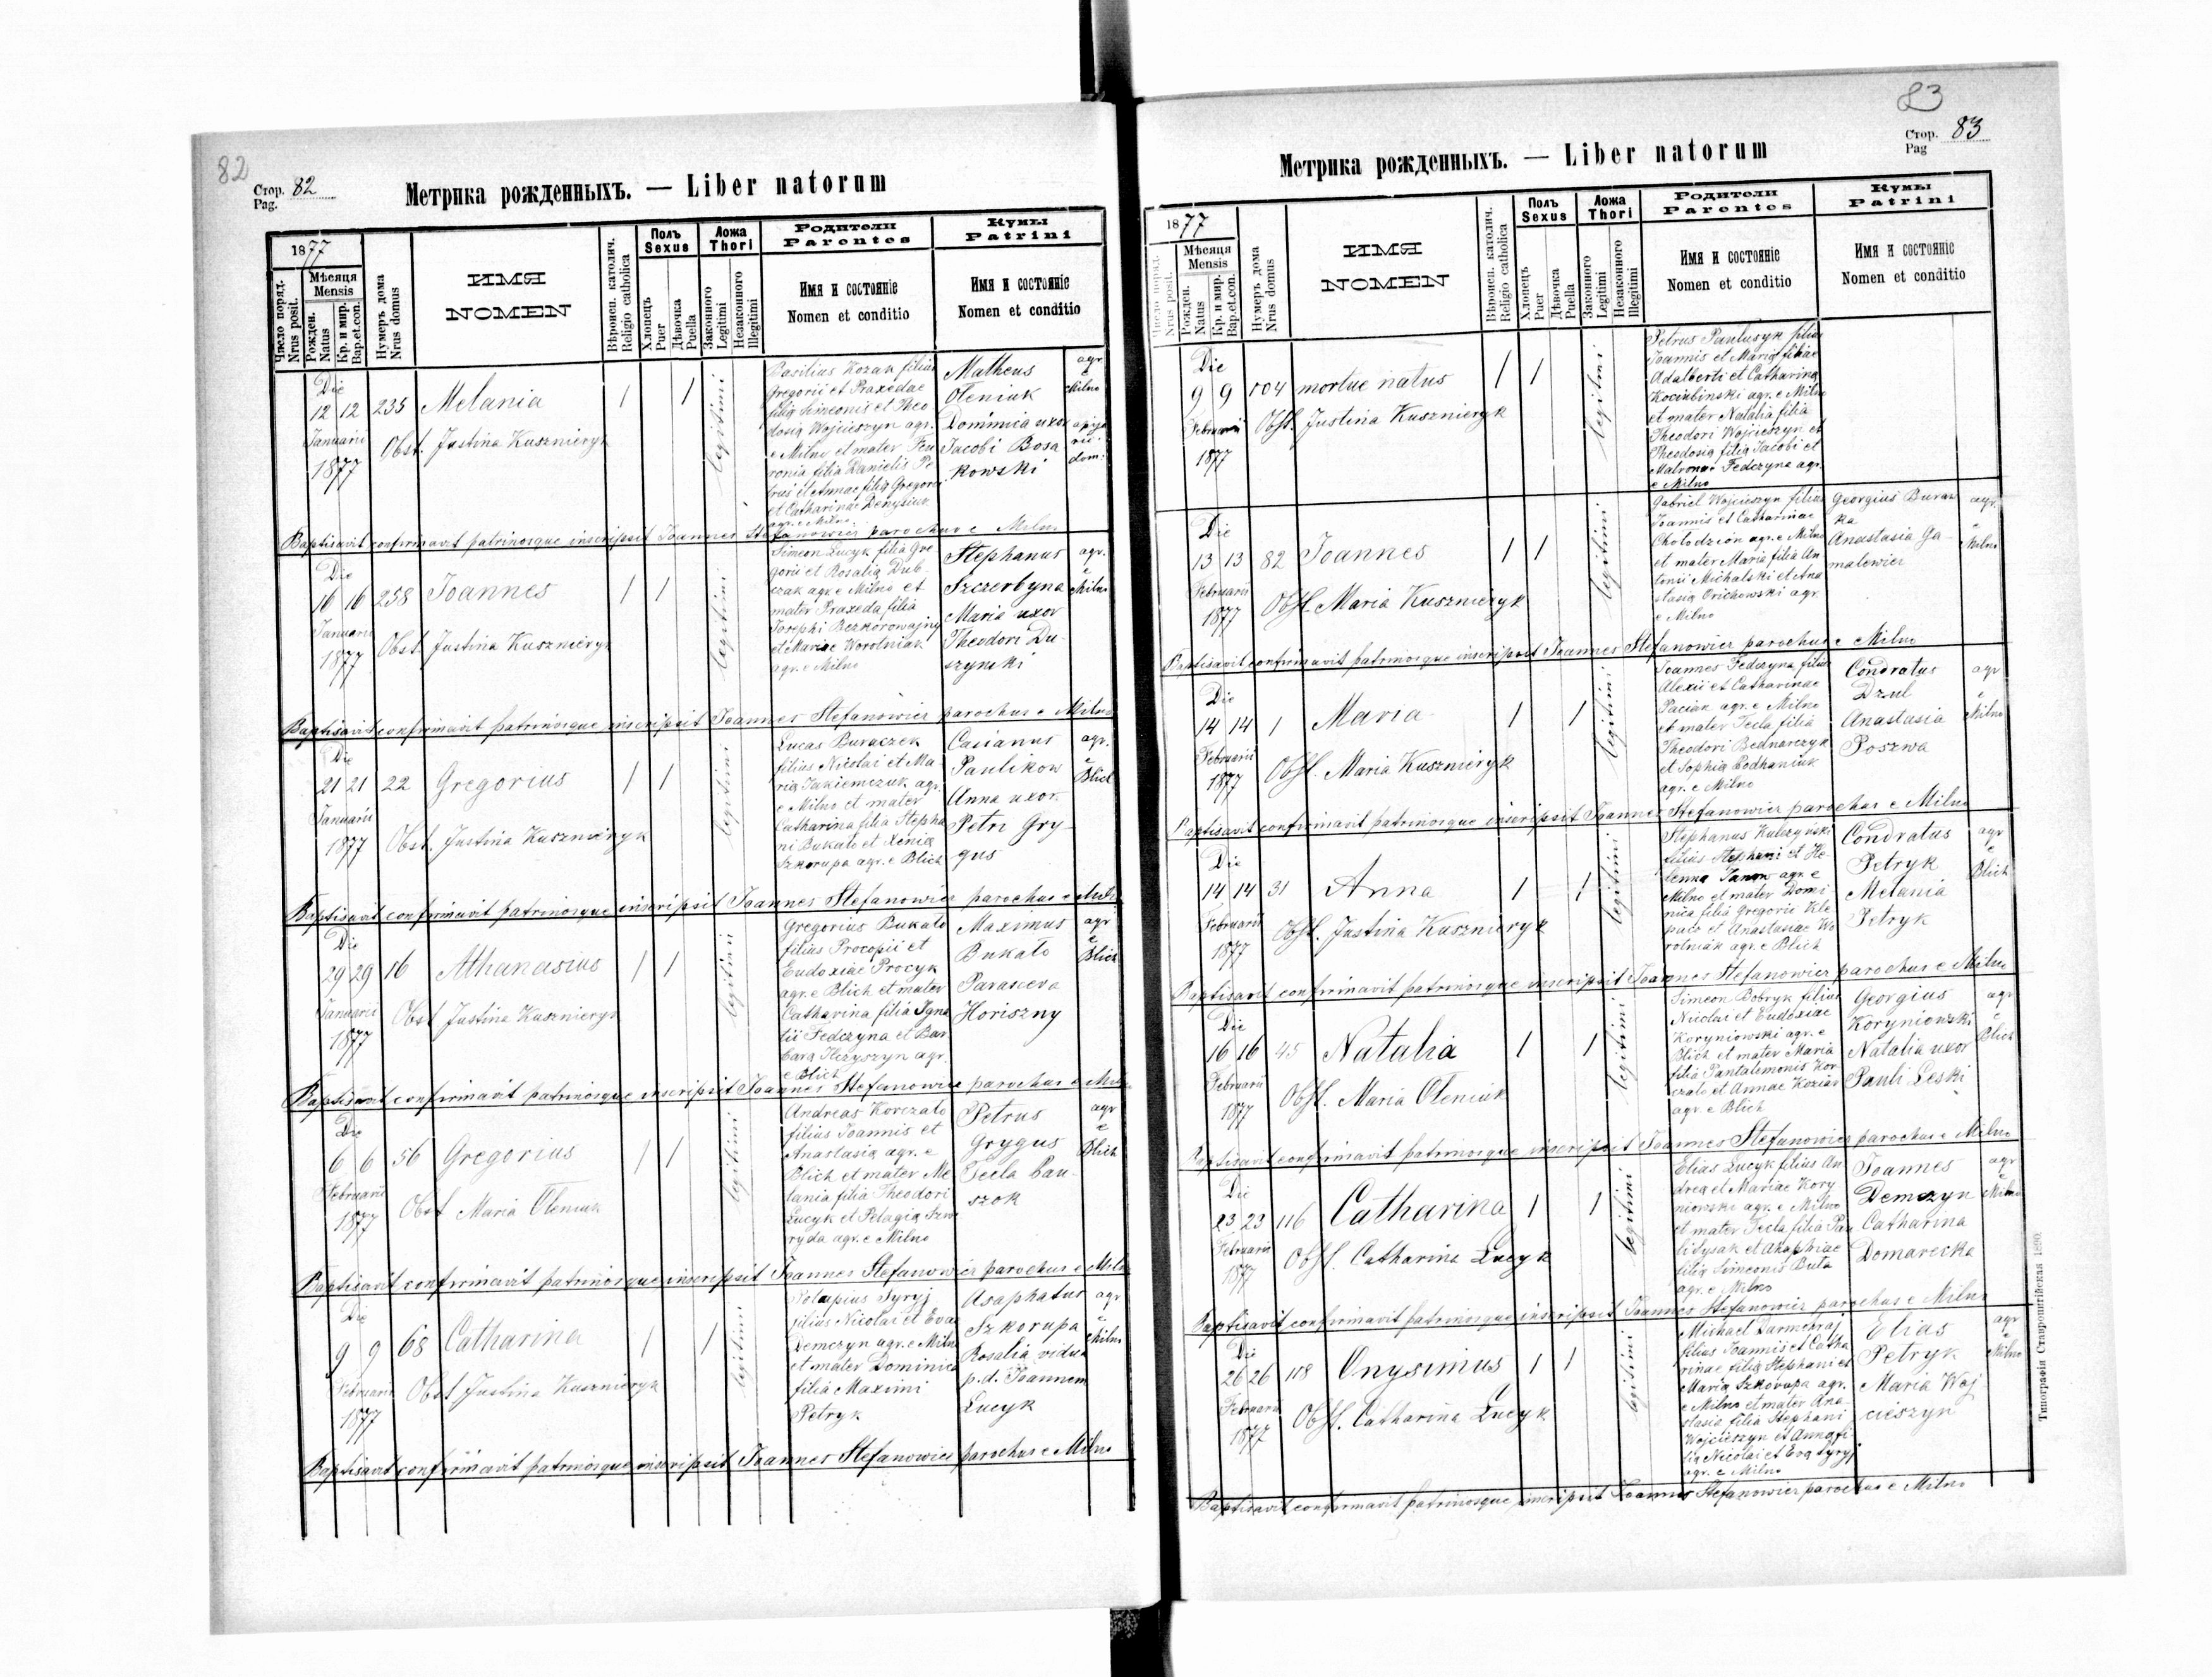 82
Стор. 82
Pag.
Метрика рожденныхъ. — Liber natorum
1877
Число поряд.
Nrus posit.
Мѣсяця
Mensis
Рожден.
Natus
Кр. и мир.
Bap.et.con.
Нумеръ дома
Nrus domus
ИМЯ
NOMEN
Вѣроисп. католич.
Religio catholica
Полъ
Sexus
Хлопецъ
Puer
Дѣвочка
Puella
Ложа
Thori
Законного
Legitimi
Незаконного
Illegitimi
Родители
Parentes
Имя и состоянiе
Nomen et conditio
Кумы
Patrini
Имя и состоянiе
Nomen et conditio
Die
12 12 235 Melania 1 1 legitimi
Januarii
1877
Obst. Justina Kusznieryk
Basilius Kozak filius
Gregorii et Praxedae
filia Simeonis et Theo
dosia Wojcieszyn agr.
e Milno et mater Feu
ronia filia Danielis Pe
trus et Annae filia Gregorii
et Catharina Denysiuk
agr. e Milno
Matheus
Oleniuk
Dominica uxor
Jacobi Bosa
kowski
agr
e
Milno
dom.
Baptisavit confirmavit patrinosque inscripsit Joannes Stefanowicz parochus e Milno
Die
16 16 258 Joannes 1 1 legitimi
Januarii
1877
Obst. Justina Kusznieryk
Simeon Lucyk filia Gre
gorii et Rosalia Dub
czak agr e Milno et
mater Praxeda filia
Josephi Bezkorowajny
et Mariae Worotniak
agr. e Milno
Stephanus
Szczerbyna
Maria uxor
Theodori Du-
szynski
agr.
e
Milno
Baptisavit confirmavit patrinosque inscripsit Joannes Stefanowicz parochus e Milno
Die
21 21 22 Gregorius 1 1 legitimi
Januarii
1877
Obst. Justina Kusznieryk
Lucas Buraczek
filius Nicolai et Ma-
ria Jakiemczuk agr.
e Milno et mater
Catharina filia Stepha
ni Bukato et Xenia
Szkorupa agr. e Blich
Casianus
Paulikow
Anna uxor
Petri Gry-
gus
agr.
e
Blich
Baptisavit confirmavit patrinosque inscripsit Joannes Stefanowicz parochus e Milno
Die
29 29 16 Athanasius 1 1 legitimi
Januarii
1877
Obst Justina Kusznieryk
Gregorius Bukato
filius Procopii et
Eudoxiae Procyk
agr. e Blich et mater
Catharina filia Igna
tii Fedczyna et Bar
bara Ilczyszyn agr.
e Blich
Maximus
Bukato
Parasceva
Horiszny
agr
e
Blich
Baptisavit confirmavit patrinosque inscripsit Joannes Stefanowicz parochus e Milno
Die
6 6 56 Gregorius 1 1 legitimi
Februarii
1877
Obst Maria Oleniuk
Andreas Korczato
filius Joannis et
Anastasia agr. e
Blich et mater Me
lania filia Theodori
Lucyk et Pelagia Szwo
ryda agr. e Milno
Petrus
Grygus
Tecla Pau-
szok
agr
e
Blich
Baptisavit confirmavit patrinosque inscripsit Joannes Stefanowicz parochus e Milno
Die
9 9 68 Catharina 1 1 legitimi
Februarii
1877
Obst Justina Kusznieryk
Syryj
filius Nicolai et Eva
Demczyn agr. e Milno
et mater Dominica
filia Maximi
Petryk
Asaphatus
Szkorupa
Rosalia vidua
p.d. Joannem
Lucyk
agr
e
Milno
Baptisavit confirmavit patrinosque inscripsit Joannes Stefanowicz parochus e Milno
83
Стор. 83
Pag
Метрика рожденныхъ. — Liber natorum
1877
Число поряд.
Nrus posit.
Мѣсяця
Mensis
Рожден.
Natus
Кр. и мир.
Bap.et.con.
Нумеръ дома
Nrus domus
ИМЯ
NOMEN
Вѣроисп. католич.
Religio catholica
Полъ
Sexus
Хлопецъ
Puer
Дѣвочка
Puella
Ложа
Thori
Законного
Legitimi
Незаконного
Illegitimi
Родители
Parentes
Имя и состоянiе
Nomen et conditio
Кумы
Patrini
Имя и состоянiе
Nomen et conditio
Die
9 9 104 mortue natus 1 1 legitimi
Februarii
1877
Obst. Justina Kusznieryk
Petrus Paulusyk filius
Joannis et Maria filiae
Adalberti et Catharina
Kociubinski agr. e Milno
et mater Natalia filia
Theodori Wojcieszyn et
Theodosia filia Jacobi et
Matronae Fedczyna agr.
e Milno
Die
13 13 82 Joannes 1 1 legitimi
Februarii
1877
Obst. Maria Kusznieryk
Gabriel Wojcieszyn filius
Joannis et Catharinae
Cholodzion agr. e Milno
et mater Maria filia An
tonii Michalski et Ana
stasia Orichowski agr.
e Milno
Georgius Buraw
ka
Anastasia Ga-
malewicz
agr.
e
Milno
Baptisavit confirmavit patrinosque inscripsit Joannes Stefanowicz parochus e Milno
Die
14 14 1 Maria 1 1 legitimi
Februarii
1877
Obst. Maria Kusznieryk
Joannes Fedczyna filius
Alexii et Catharinae
Paciak agr. e Milno
et mater Tecla filia
Theodori Bednarczyk
et Sophia Podhaniuk
agr. e Milno
Condratus
Dzul
Anastasia
Poszwa
agr
e
Milno
Baptisavit confirmavit patrinosque inscripsit Joannes Stefanowicz parochus e Milno
Die
14 14 31 Anna 1 1 legitimi
Februarii
1877
Obst. Justina Kusznieryk
Stephanus Kulczyński
filius Stephani et He-
lenna agr e
Milno et mater Domi
nica filia Gregorii Kle
pacz et Anastasiae Wo
rotniak agr. e Blich
Condratus
Petryk
Melania
Petryk
agr
e
Blich
Baptisavit confirmavit patrinosque inscripsit Joannes Stefanowicz parochus e Milno
Die
16 16 45 Natalia 1 1 legitimi
Februarii
1877
Obst. Maria Oleniuk
Simeon Bobryk filius
Nicolai et Eudoxiae
Koryniowski agr. e
Blich et mater Maria
filia Pantalemonis Kor
czato et Annae Koziar
agr. e Blich
Georgius
Koryniowski
Natalia uxor
Pauli Leski
agr
e
Blich
Baptisavit confirmavit patrinosque inscripsit Joannes Stefanowicz parochus e Milno
Die
23 23 116 Catharina 1 1 legitimi
Februarii
1877
Obst. Catharina Lucyk
Elias Lucyk filius An
drea et Mariae Kory
niowski agr. e Milno
et mater Tecla filia Pau
li Sysak et Anaphiae
filia Simeonis Buta
agr. e Milno
Joannes
Demczyn
Catharina
Domarecka
agr
e
Milno
Baptisavit confirmavit patrinosque inscripsit Joannes Stefanowicz parochus e Milno
Die
26 26 118 Onysimus 1 1 legitimi
Februarii
1877
Obst. Catharina Lucyk
Michael Darmohraj
filius Joannis et Catha
rinae filia Stephani et
Maria Szkorupa agr.
e Milno et mater Ana-
stasia filia Stephani
Wojcieszyn et Anna fi-
lia Nicolai et Eva Syryj
agr. e Milno
Elias
Petryk
Maria Woj
cieszyn
agr
e
Milno
Baptisavit confirmavit patrinosque inscripsit Joannes Stefanowicz parochus e Milno
Типографія Ставропигійская 1890.